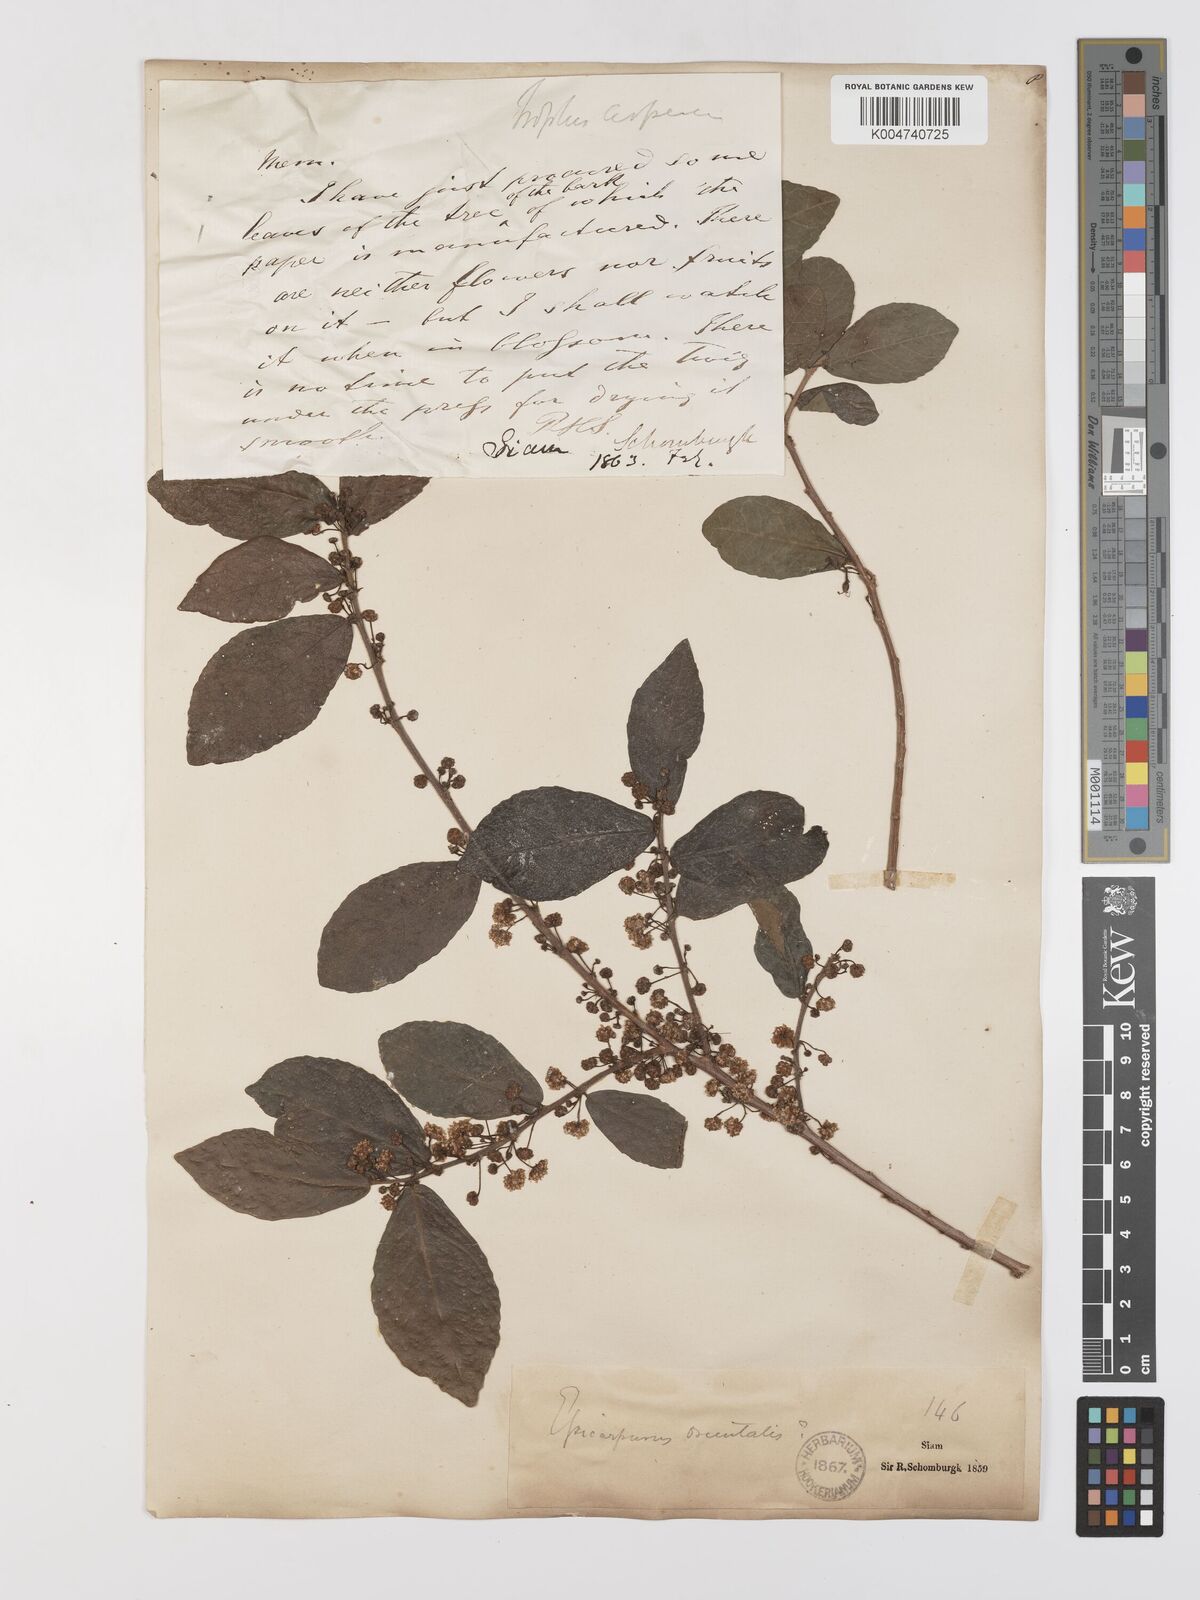 ROYAL BOTANIC GARDENS KEW
K004740725
Trophis aspera
Mem.
I have just procured some
leaves of the tree of the bark of which the
paper is manufactured. There
are neither flowers nor fruits
on it — but I shall watch
it when in blossom. There
is no time to put the twig
under the press for drying it
smooth.
R.H.S.
Siam Schomburgk
1863. Feb.
Epicarpurus orientalis?
146
Siam
Sir R. Schomburgk 1859
HERBARIUM
1867.
HOOKERIANUM
inches
centimetres
Don Williams
M001114
Royal Botanic Gardens
Kew
copyright reserved
0 1 2 3 4 5 6 7 8 9 10
cm